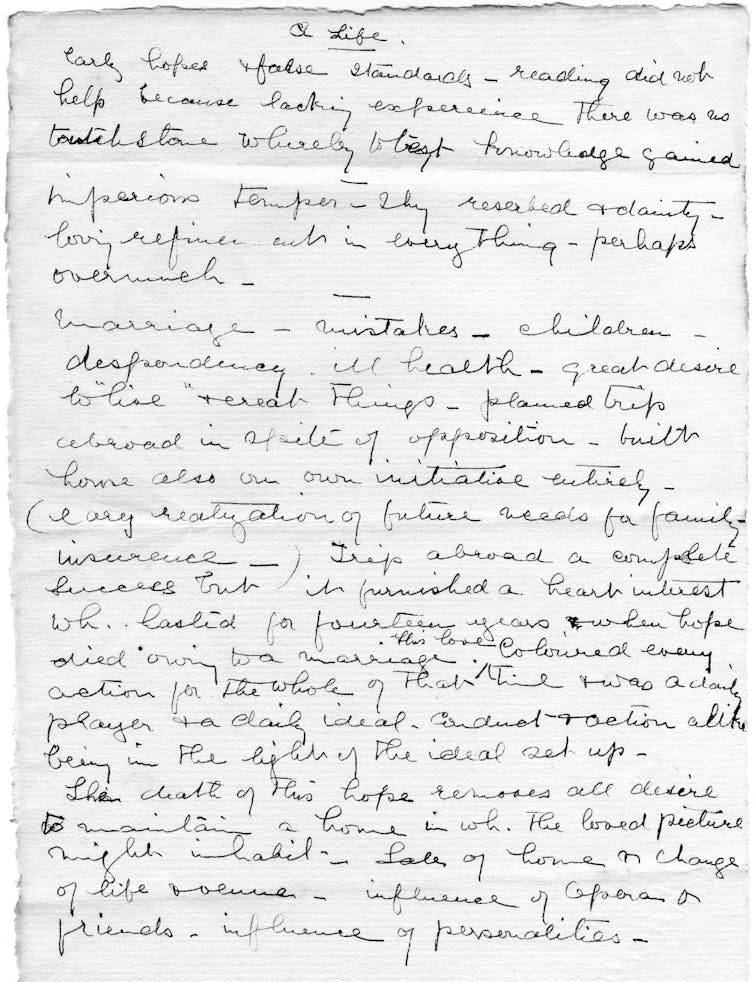 A Life.
Early hopes & false standards – reading did not
help because lacking experience there was no
touchstone whereby to test knowledge gained
—
Imperious temper – shy reserved & dainty –
loving refinement in everything – perhaps
overmuch –
—
Marriage – mistakes – children –
despondency. ill health – great desire
to "live" & creat things – planned trip
abroad in spite of opposition – built
home also on own initiative entirely –
(early realization of future needs for family
insurence –) Trip abroad a complete
success but it furnished a heart interest
wh. lasted for fourteen years & when hope
died owing to a marriage. This love Coloured every
action for the whole of that time & was a daily
prayer & a daily ideal. Conduct & action alike
being in the light of the ideal set up –
The death of this hope removes all desire
to maintain a home in wh. the loved picture
might inhabit – Sale of home & change
of life & venue – influence of Opera &
friends – influence of personalities –